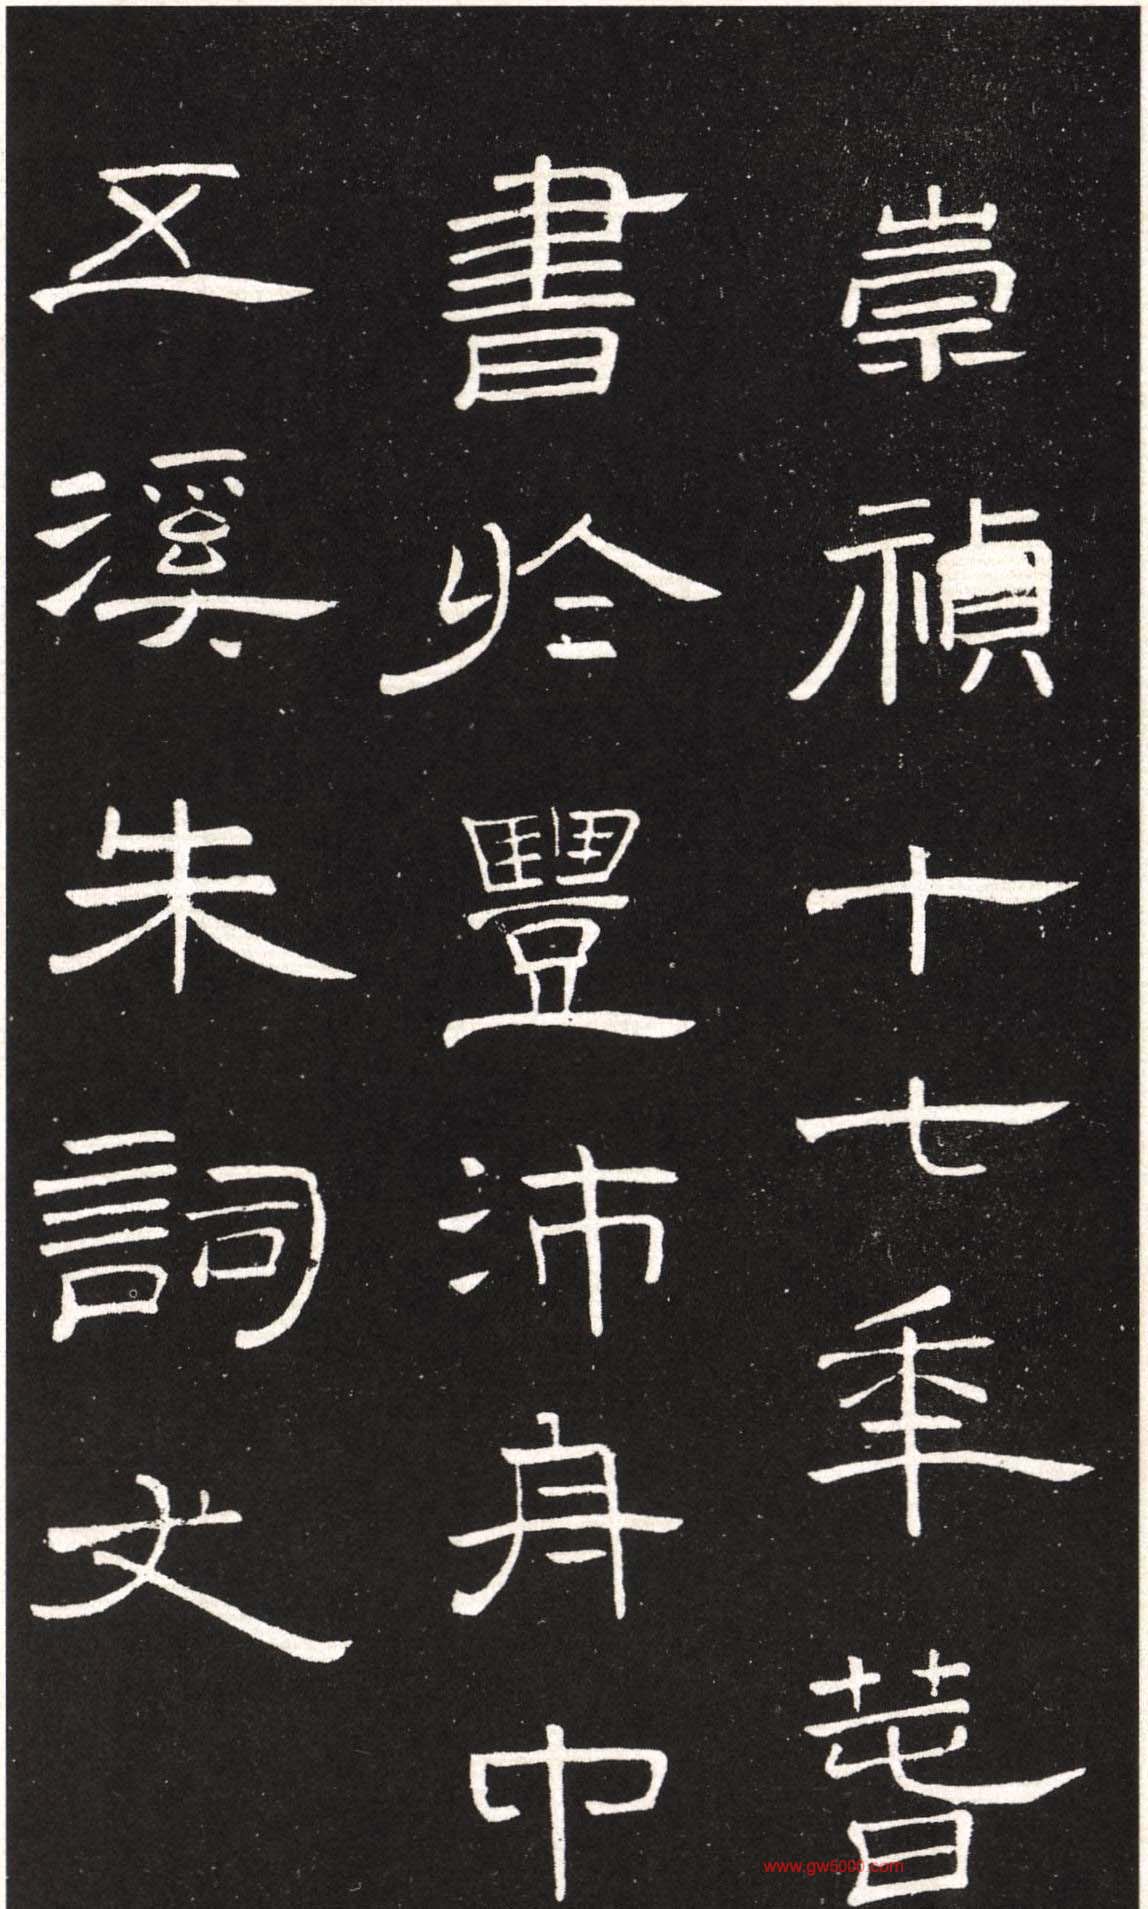 崇禎十七年萅
書於豐沛舟中
五溪朱詞文
www.gw5000.com